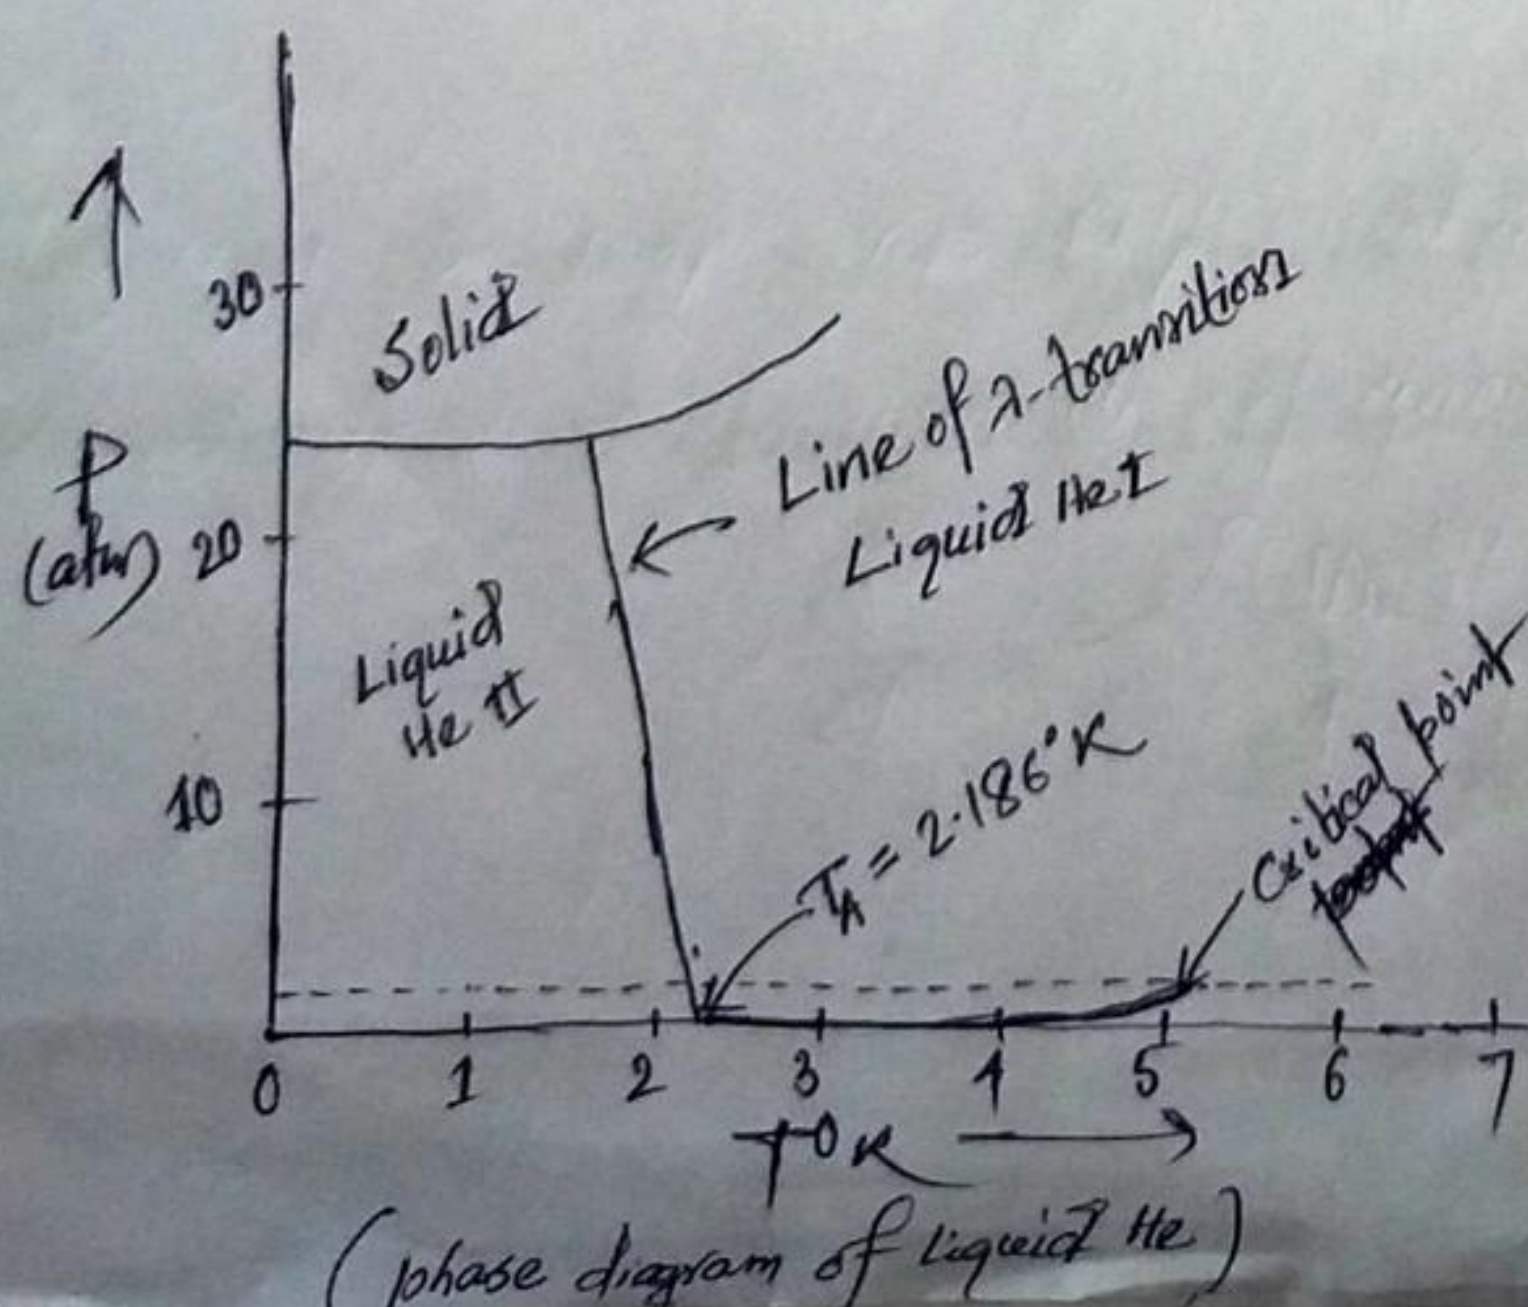 30
Solid
Line of λ-transition
P
(atm)
20
Liquid He I
Liquid
He II
10
Tλ = 2.186°K
Critical point
0 1 2 3 4 5 6 7
T°K
(phase diagram of liquid He)